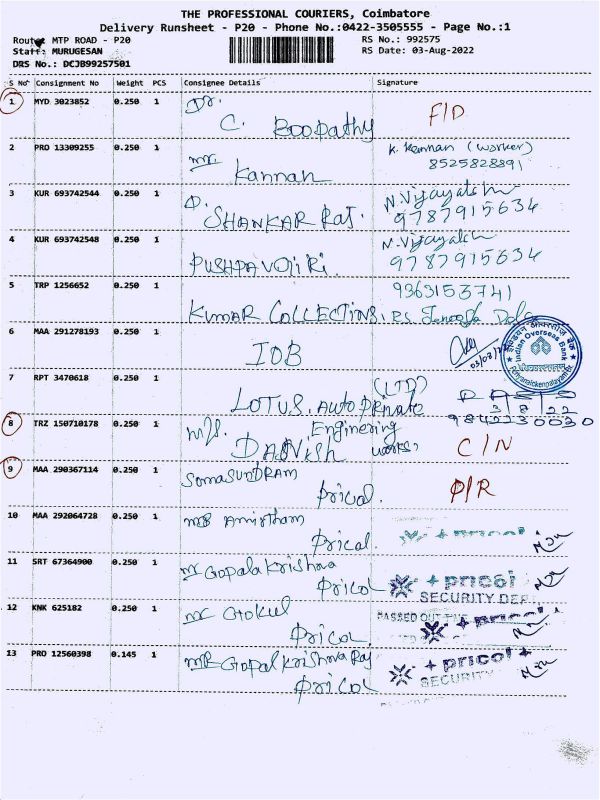 THE PROFESSIONAL COURIERS, Coimbatore
Delivery Runsheet - P20 - Phone No.:0422-3505555 - Page No.:1
Route: MTP ROAD - P20
RS No.: 992575
Staff: MURUGESAN
RS Date: 03-Aug-2022
DRS No.: DCJB99257501
S No Consignment No Weight PCS Consignee Details Signature
1 MYD 3023852 0.250 1 Dr. F/D
C. Boopathy
2 PRO 13309255 0.250 1 Mr K. Kannan (worker)
Kannan 8525828891
3 KUR 693742544 0.250 1 D. N. Vijayalakshmi
SHANKAR RAJ. 9787915634
4 KUR 693742548 0.250 1 N. Vijayalakshmi
9787915634
5 TRP 1256652 0.250 1 9363153741
KUMAR COLLECTINS,
6 MAA 291278193 0.250 1 IOB
Indian Overseas Bank
7 RPT 3470618 0.250 1 (LTD)
LOTUS. Auto Private 3 8 22
9842230030
8 TRZ 150710178 0.250 1 M/s. Enginering
DANISH works, C/N
9 MAA 290367114 0.250 1 SomaSunDRAM P/R
Pricol.
10 MAA 292064728 0.250 1 Amirtham
Pricol.
11 SRT 67364900 0.250 1 Mr Gopalakrishna pricol
Pricol SECURITY DEP
12 KNK 625182 0.250 1 Mr Gokul PASSED OUT
Pricol pricol
13 PRO 12560398 0.145 1 MR Gopal Krishna Raj pricol
Pricol SECURITY